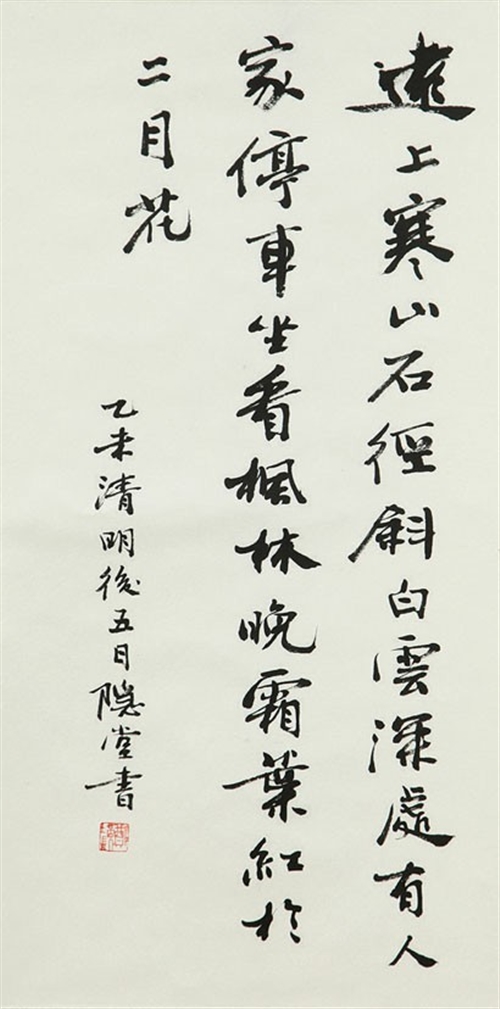 遠上寒山石徑斜白雲深處有人
家停車坐看楓林晚霜葉紅於
二月花
乙未清明後五日隱堂書